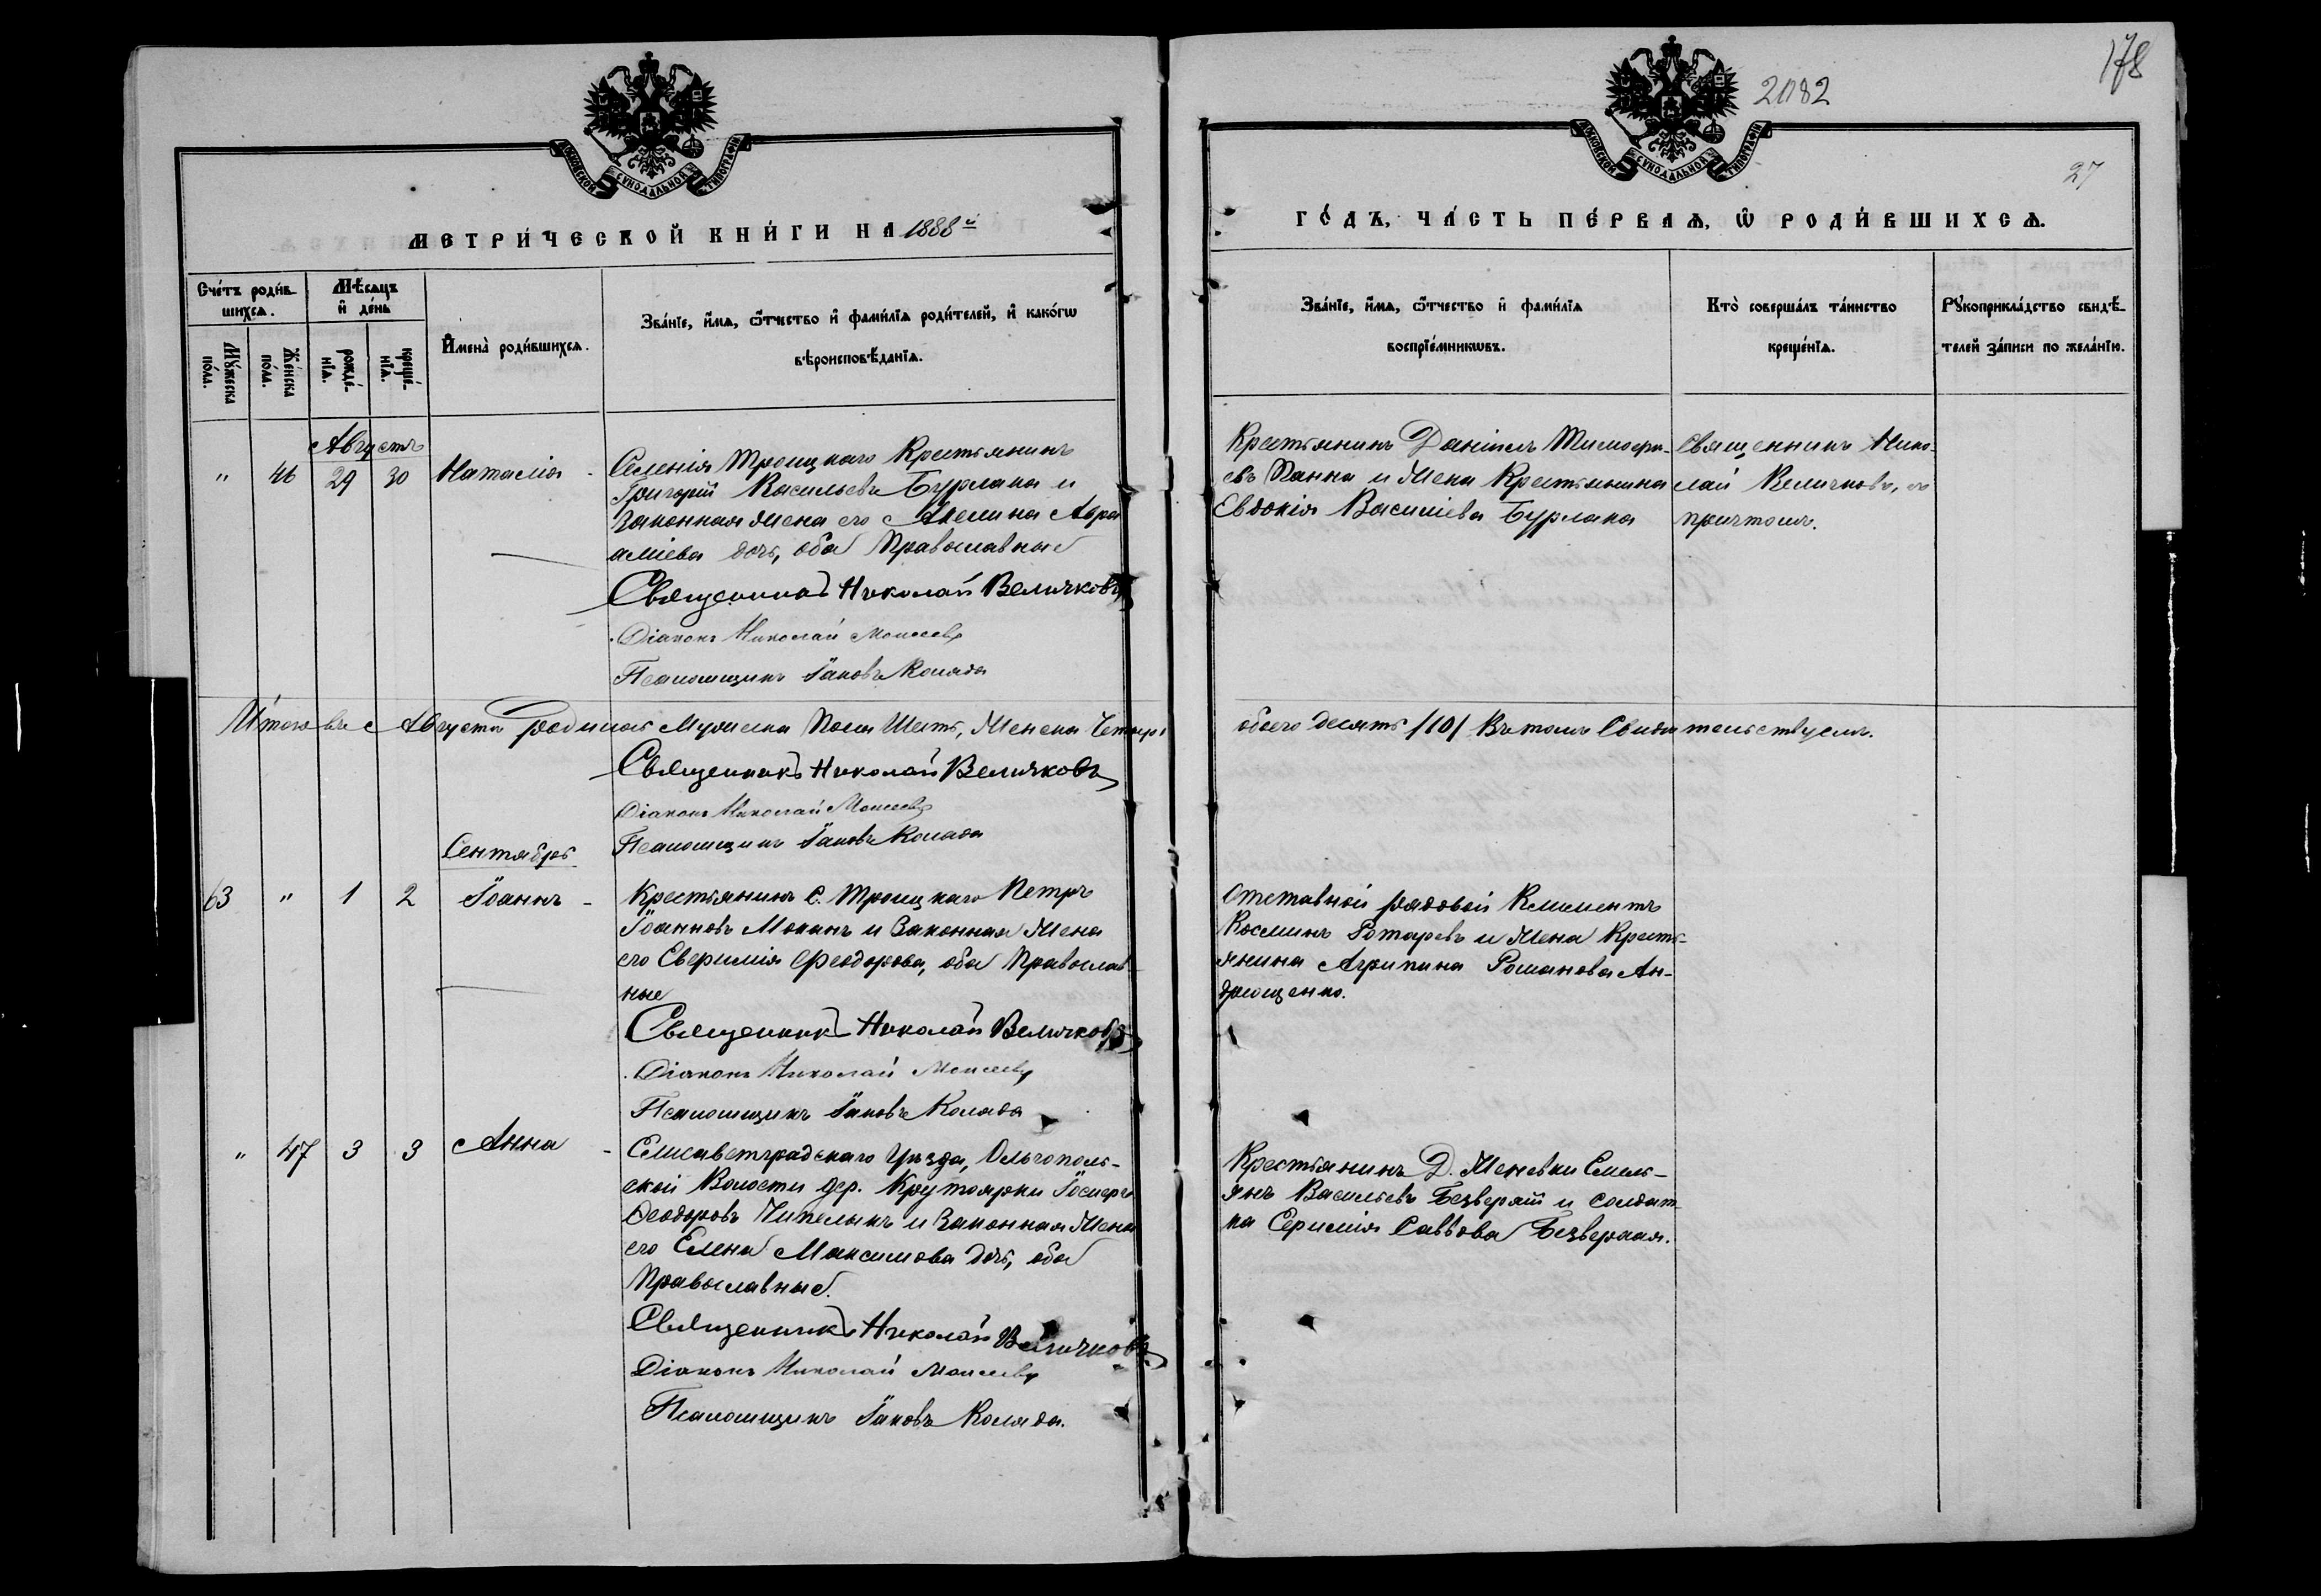 178
2082
27
МОСКОВСКОЙ СѴНОДАЛЬНОЙ ТИПОГРАФІИ
МОСКОВСКОЙ СѴНОДАЛЬНОЙ ТИПОГРАФІИ
МЕТРИ́ЧЕСКОЙ КНИ́ГИ НА 1888й
ГО́ДЪ, ЧА́СТЬ ПЕ́РВАѦ, Ѡ҆ РОДИ́ВШИХСѦ.
Сче́тъ роди́в-
шихсѧ.
Мѣ́сѧцъ
и҆ де́нь
Мꙋ́жеска
по́ла.
Же́нска
по́ла.
рожде́-
нїѧ.
креще́-
нїѧ.
И҆мена̀ роди́вшихсѧ.
Зва́нїе, и҆́мѧ, ѻ҆́тчество и҆ фами́лїѧ роди́телей, и҆ како́гѡ
вѣроисповѣ́данїѧ.
Зва́нїе, и҆́мѧ, ѻ҆́тчество и҆ фами́лїѧ
воспрїе́мникѡвъ.
Кто̀ соверша́лъ та́инство
креще́нїѧ.
Рꙋкоприкла́дство свидѣ́-
телей за́писи по жела́нїю.
Августъ
" 46 29 30 Наталія - Селенія Троицкаго Крестьянинъ
Григорій Васильевъ Бурлака и
Законная Жена его Акелина Авра
аміева дочь, оба Православные
Священникъ Николай Величковъ
Діаконъ Николай Моисеевъ
Псаломщикъ Іаковъ Коляда
Крестьянинъ Даніилъ Тимофе-
евъ Панна и Жена Крестьянина
Евдокія Василіева Бурлака
Священникъ Нико-
лай Величковъ, съ
причтомъ.
Итого въ Августѣ родилось Мужеска Пола Шесть, Женска Четыре
обоего десять /10/ Въ томъ Свидѣтельствуемъ.
Священникъ Николай Величковъ
Діаконъ Николай Моисеевъ
Псаломщикъ Іаковъ Коляда
Сентябрь
63 " 1 2 Іоаннъ - Крестьянинъ С. Троицкаго Петръ
Іоанновъ Моканъ и Законная Жена
его Евфимія Феодорова, оба Православ
ные
Священникъ Николай Величковъ
Діаконъ Николай Моисеевъ
Псаломщикъ Іаковъ Коляда
Отставной рядовой Климентъ
Косминъ Ротаревъ и Жена Кресть-
янина Агрипина Романова Ан-
дрющенко.
" 47 3 3 Анна - Елисаветградскаго Уѣзда, Ольгополь-
ской Волости дер. Крутоярки Іосифъ
Феодоровъ Чипелыкъ и Законная Жена
его Елена Максимова дочь, оба
Православные.
Священникъ Николай Величковъ
Діаконъ Николай Моисеевъ
Псаломщикъ Іаковъ Коляда.
Крестьянинъ Д. Женевки Емель-
янъ Васильевъ Безверхій и солдат-
ка Евфимія Саввова Безверхая.